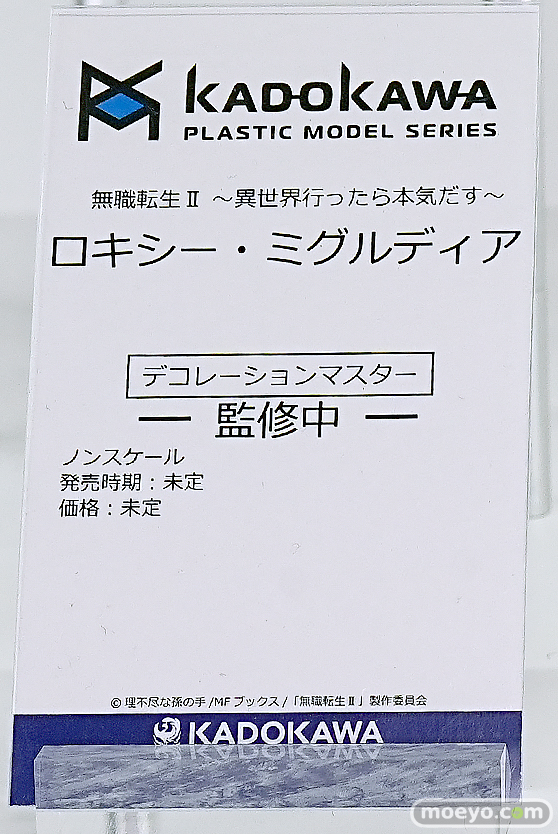 KADOKAWA
PLASTIC MODEL SERIES
無職転生Ⅱ ～異世界行ったら本気だす～
ロキシー・ミグルディア
デコレーションマスター
― 監修中 ―
ノンスケール
発売時期：未定
価格：未定
© 理不尽な孫の手/MFブックス/「無職転生Ⅱ」製作委員会
KADOKAWA
moeyo.com